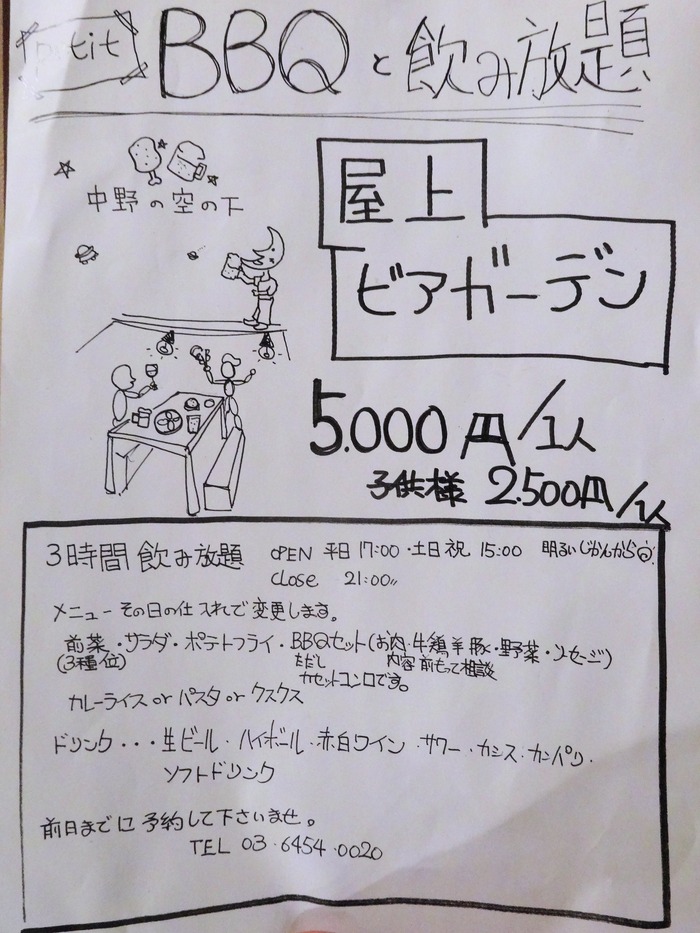 petit BBQと飲み放題
中野の空の下
屋上
ビアガーデン
5.000円/1人
子供様 2.500円/1人
3時間 飲み放題 OPEN 平日 17:00・土日祝 15:00 明るいじかんから
CLOSE 21:00
メニューその日の仕入れで変更します。
前菜・サラダ・ポテトフライ・BBQセット(お肉・牛鶏羊豚・野菜・ソーセージ)
(3種位) ただし 内容前もって相談
カセットコンロです。
カレーライス or パスタ or クスクス
ドリンク・・・生ビール・ハイボール・赤白ワイン・サワー・カシス・カンパリ・
ソフトドリンク
前日までに予約して下さいませ。
TEL 03・6454・0020